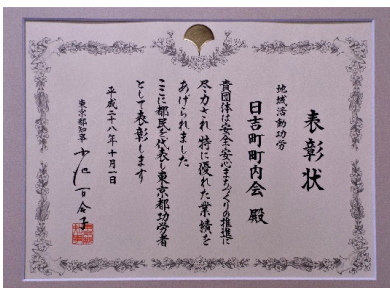 表彰状
地域活動功労
日吉町町内会 殿
貴団体は安全安心まちづくりの推進に
尽力され特に優れた業績を
あげられました
ここに都民を代表し東京都功労者
として表彰します
平成二十八年十月一日
東京都知事 小池百合子